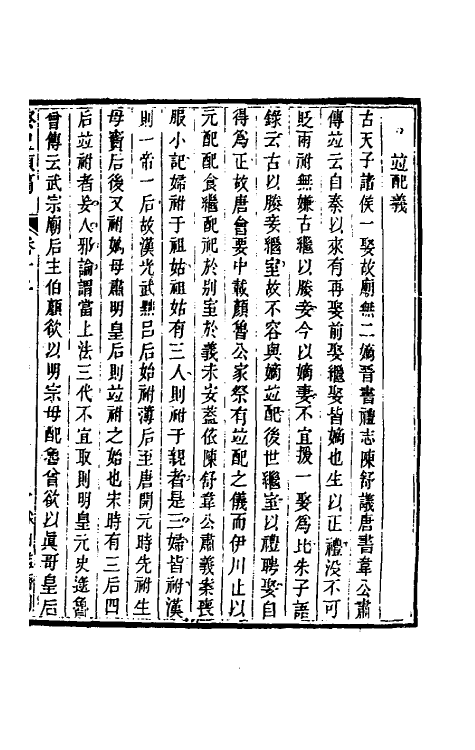 竝配義
古天子諸侯一娶故廟無二嫡晋書禮志陳舒議唐書韋公肅
傳竝云自秦以來有再娶前娶繼娶皆嫡也生以正禮没不可
貶兩祔無嫌古繼以媵妾今以嫡妻不宜援一娶為比朱子語
錄云古以媵妾繼室故不容與嫡竝配後世繼室以禮聘娶自
得為正故唐會要中載顏魯公家祭有竝配之儀而伊川止以
元配配食繼配祀於别室於義未安葢依陳舒韋公肅義案喪
服小記婦祔于祖姑祖姑有三人則祔于親者是三婦皆祔漢
則一帝一后故漢光武黜呂后始祔薄后至唐開元時先祔生
母竇后後又祔嫡母肅明皇后則竝祔之始也宋時有三后四
后竝祔者妾人邪論謂當上法三代不宜取則明皇元史逯魯
曾傳云武宗廟后主伯顏欲以明宗母配魯曾欲以眞哥皇后